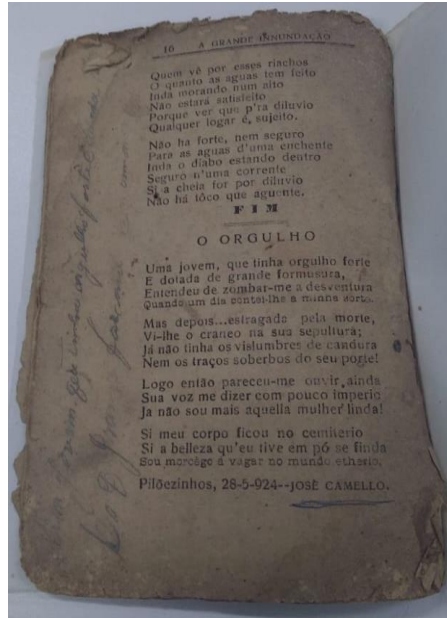 16 A GRANDE INNUNDAÇÃO
Quem vê por esses riachos
O quanto as aguas tem feito
Inda morando num alto
Não estará satisfeito
Porque ver que p'ra diluvio
Qualquer logar é, sujeito.
Não ha forte, nem seguro
Para as aguas d'uma enchente
Inda o diabo estando dentro
Seguro n'uma corrente
Si a cheia for por diluvio
Não há tôco que aguente.
FIM
O ORGULHO
Uma jovem, que tinha orgulho forte
E dotada de grande formusura,
Entendeu de zombar-me a desventura
Quando um dia contei-lhe a minha sorte.
Mas depois...estragada pela morte,
Vi-lhe o craneo na sua sepultura;
Já não tinha os vislumbres de candura
Nem os traços soberbos do seu porte!
Logo então pareceu-me ouvir ainda
Sua voz me dizer com pouco imperio
Ja não sou mais aquella mulher linda!
Si meu corpo ficou no cemiterio
Si a belleza qu'eu tive em pó se finda
Sou morcêgo a vagar no mundo etherio.
Pilõezinhos, 28-5-924--JOSÉ CAMELLO.